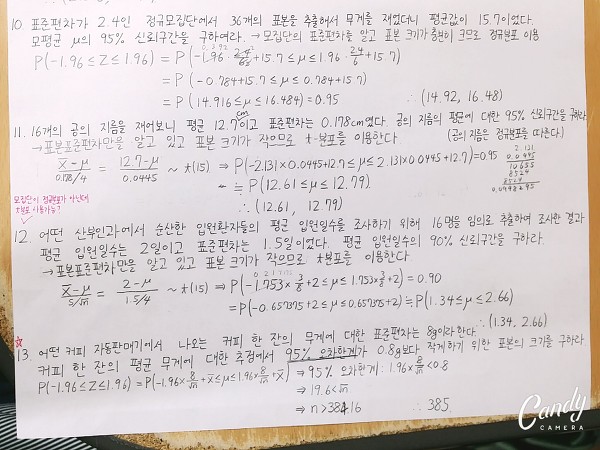 10. 표준편차가 2.4인 정규모집단에서 36개의 표본을 추출해서 무게를 재었더니 평균값이 15.7이었다.
모평균 μ의 95% 신뢰구간을 구하여라. → 모집단의 표준편차를 알고 표본 크기가 충분히 크므로 정규분포 이용
P(-1.96≤Z≤1.96) = P(-1.96×2.4/6+15.7≤μ≤1.96·2.4/6+15.7)
= P(-0.784+15.7≤μ≤0.784+15.7)
= P(14.916≤μ≤16.484)=0.95 ∴ (14.92, 16.48)
11. 16개의 공의 지름을 재어보니 평균 12.7cm이고 표준편차는 0.178cm였다. 공의 지름의 평균에 대한 95% 신뢰구간을 구하라.
(공의 지름은 정규분포를 따른다.)
→ 표본표준편차만을 알고 있고 표본 크기가 작으므로 t-분포를 이용한다.
x̄-μ / 0.178/4 = 12.7-μ / 0.0445 ~ t(15) ⇒ P(-2.131×0.0445+12.7≤μ≤2.131×0.0445+12.7)=0.95
2.131
0.0445
10655
8524
8524
0.0948295
≒ P(12.61≤μ≤12.79)
∴ (12.61, 12.79)
모집단이 정규분포가 아닌데
t분포 사용가능?
12. 어떤 산부인과에서 순산한 입원환자들의 평균 입원일수를 조사하기 위해 16명을 임의로 추출하여 조사한 결과
평균 입원일수는 2일이고 표준편차는 1.5일이었다. 평균 입원일수의 90% 신뢰구간을 구하라.
→ 표본표준편차만을 알고 있고 표본 크기가 작으므로 t분포를 이용한다
x̄-μ / s/√n = 2-μ / 1.5/4 ~ t(15) ⇒ P(-1.753×3/8+2≤μ≤1.753×3/8+2) = 0.90
=P(-0.657375+2≤μ≤0.657375+2)≒P(1.34≤μ≤2.66)
∴ (1.34, 2.66)
☆
13. 어떤 커피 자동판매기에서 나오는 커피 한 잔의 무게에 대한 표준편차는 8g이라한다.
커피 한 잔의 평균 무게에 대한 추정에서 95% 오차한계가 0.8g보다 작게하기 위한 표본의 크기를 구하라
P(-1.96≤Z≤1.96)=P(-1.96×8/√n+x̄≤μ≤1.96×8/√n+x̄) ⇒ 95% 오차한계: 1.96×8/√n<0.8
⇒ 19.6<√n
⇒ n>384.16 ∴ 385.
Candy
CAMERA